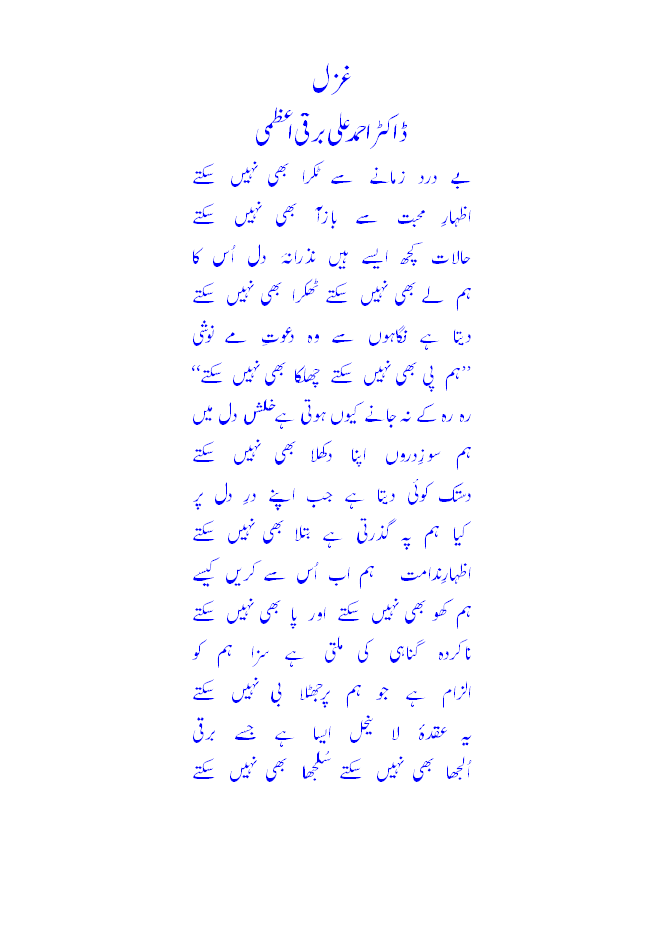 غزل
ڈاکٹر احمد علی برقی اعظمی
بے درد زمانے سے ٹکرا بھی نہیں سکتے
اظہارِ محبت سے بازآ بھی نہیں سکتے
حالات کچھ ایسے ہیں نذرانۂ دل اُس کا
ہم لے بھی نہیں سکتے ٹھکرا بھی نہیں سکتے
دیتا ہے نگاہوں سے وہ دعوتِ مے نوشی
’’ہم پی بھی نہیں سکتے چھلکا بھی نہیں سکتے‘‘
رہ رہ کے نہ جانے کیوں ہوتی ہے خلش دل میں
ہم سوزِدروں اپنا دکھلا بھی نہیں سکتے
دستک کوئی دیتا ہے جب اپنے درِ دل پر
کیا ہم پہ گذرتی ہے بتلا بھی نہیں سکتے
اظہارِندامت ہم اب اُس سے کریں کیسے
ہم کھو بھی نہیں سکتے اور پا بھی نہیں سکتے
ناکردہ گناہی کی ملتی ہے سزا ہم کو
الزام ہے جو ہم پرجھٹلا بی نہیں سکتے
یہ عقدۂ لا ینحل ایسا ہے جسے برقی
اُلجھا بھی نہیں سکتے سُلجھا بھی نہیں سکتے